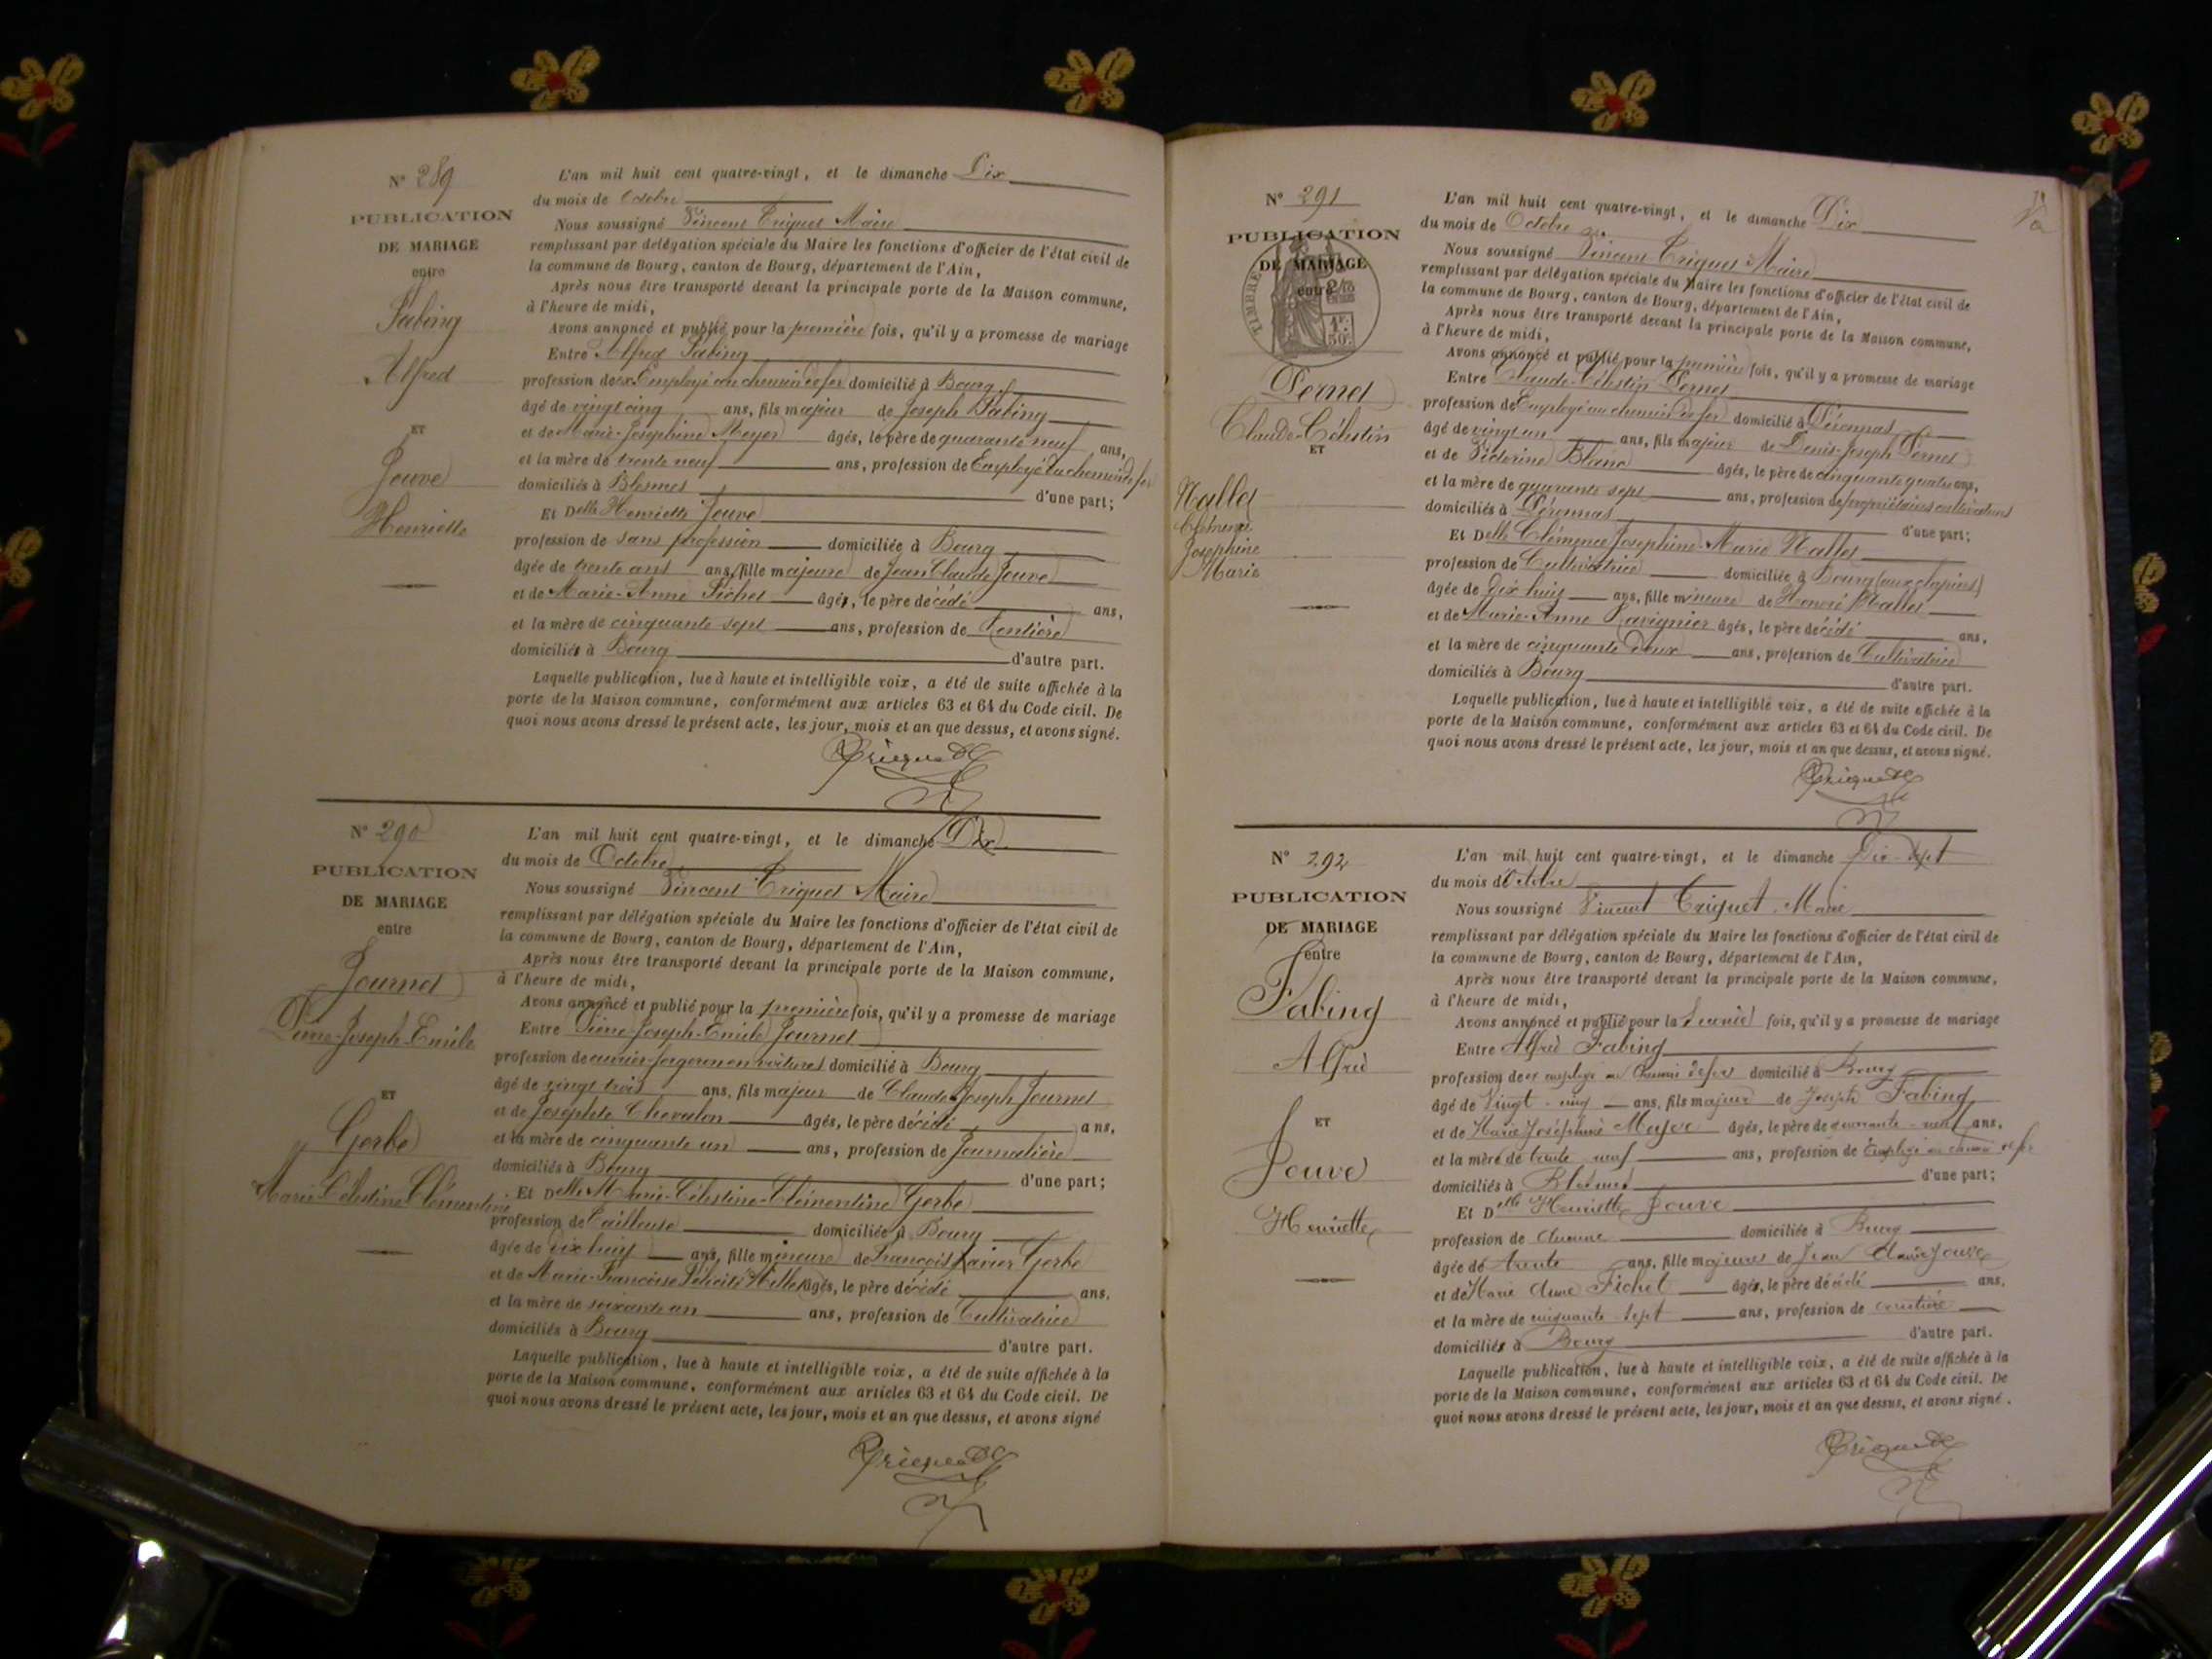 N° 289
PUBLICATION
DE MARIAGE
entre
Fabing
Alfred
ET
Jouve
Henriette
L'an mil huit cent quatre-vingt, et le dimanche Dix
du mois de Octobre
Nous soussigné Vincent Triquet Maire
remplissant par délégation spéciale du Maire les fonctions d'officier de l'état civil de
la commune de Bourg, canton de Bourg, département de l'Ain,
Après nous être transporté devant la principale porte de la Maison commune,
à l'heure de midi,
Avons annoncé et publié pour la première fois, qu'il y a promesse de mariage
Entre Alfred Fabing
profession de ex Employé au chemin de fer domicilié à Bourg
âgé de vingt cinq ans, fils majeur de Joseph Fabing
et de Marie-Joséphine Meyer âgés, le père de quarante neuf ans,
et la mère de trente neuf ans, profession de Employé au chemin de fer
domiciliés à Blesmes d'une part;
Et Delle Henriette Jouve
profession de sans profession domiciliée à Bourg
âgée de trente ans ans, fille majeure de Jean Claude Jouve
et de Marie-Anne Fichet âgés, le père décédé ans,
et la mère de cinquante-sept ans, profession de Rentière
domiciliés à Bourg d'autre part.
Laquelle publication, lue à haute et intelligible voix, a été de suite affichée à la
porte de la Maison commune, conformément aux articles 63 et 64 du Code civil. De
quoi nous avons dressé le présent acte, les jour, mois et an que dessus, et avons signé.
Triquet
N° 290
PUBLICATION
DE MARIAGE
entre
Journet
Pierre-Joseph-Emile
ET
Gerbe
Marie-Célestine-Clémentine
L'an mil huit cent quatre-vingt, et le dimanche Dix
du mois de Octobre
Nous soussigné Vincent Triquet Maire
remplissant par délégation spéciale du Maire les fonctions d'officier de l'état civil de
la commune de Bourg, canton de Bourg, département de l'Ain,
Après nous être transporté devant la principale porte de la Maison commune,
à l'heure de midi,
Avons annoncé et publié pour la première fois, qu'il y a promesse de mariage
Entre Pierre-Joseph-Emile Journet
profession de ouvrier forgeron en voitures domicilié à Bourg
âgé de vingt trois ans, fils majeur de Claude Joseph Journet
et de Josephte Chevalon âgés, le père décédé ans,
et la mère de cinquante un ans, profession de Journalière
domiciliés à Bourg d'une part;
Et Delle Marie-Célestine-Clémentine Gerbe
profession de Tailleuse domiciliée à Bourg
âgée de dix huit ans, fille mineure de François Xavier Gerbe
et de Marie-Françoise Félicité Millet âgés, le père décédé ans.
et la mère de soixante un ans, profession de Cultivatrice
domiciliés à Bourg d'autre part.
Laquelle publication, lue à haute et intelligible voix, a été de suite affichée à la
porte de la Maison commune, conformément aux articles 63 et 64 du Code civil. De
quoi nous avons dressé le présent acte, les jour, mois et an que dessus, et avons signé
Triquet
N° 291
PUBLICATION
DE MARIAGE
entre
TIMBRE
1F.
50c
Pernet
Claude-Célestin
ET
Nallet
Clémence
Joséphine
Marie
L'an mil huit cent quatre-vingt, et le dimanche Dix
du mois de Octobre
Nous soussigné Vincent Triquet Maire
remplissant par délégation spéciale du Maire les fonctions d'officier de l'état civil de
la commune de Bourg, canton de Bourg, département de l'Ain,
Après nous être transporté devant la principale porte de la Maison commune,
à l'heure de midi,
Avons annoncé et publié pour la première fois, qu'il y a promesse de mariage
Entre Claude-Célestin Pernet
profession de Employé au chemin de fer domicilié à Péronnas
âgé de vingt un ans, fils majeur de Denis-Joseph Pernet
et de Victorine Blanc âgés, le père de cinquante quatre ans,
et la mère de quarante sept ans, profession de propriétaires cultivateurs
domiciliés à Péronnas d'une part;
Et Delle Clémence Joséphine-Marie Nallet
profession de Cultivatrice domiciliée à Bourg (aux clapiers)
âgée de dix huit ans, fille mineure de Honoré Nallet
et de Marie-Anne Ravignier âgés, le père décédé ans,
et la mère de cinquante deux ans, profession de Cultivatrice
domiciliés à Bourg d'autre part.
Laquelle publication, lue à haute et intelligible voix, a été de suite affichée à la
porte de la Maison commune, conformément aux articles 63 et 64 du Code civil. De
quoi nous avons dressé le présent acte, les jour, mois et an que dessus, et avons signé.
Triquet
N° 292
PUBLICATION
DE MARIAGE
entre
Fabing
Alfred
ET
Jouve
Henriette
L'an mil huit cent quatre-vingt, et le dimanche Dix-sept
du mois d'Octobre
Nous soussigné Vincent Triquet, Maire
remplissant par délégation spéciale du Maire les fonctions d'officier de l'état civil de
la commune de Bourg, canton de Bourg, département de l'Ain,
Après nous être transporté devant la principale porte de la Maison commune,
à l'heure de midi,
Avons annoncé et publié pour la seconde fois, qu'il y a promesse de mariage
Entre Alfred Fabing
profession de ex employé au Chemin de fer domicilié à Bourg
âgé de Vingt-cinq ans, fils majeur de Joseph Fabing
et de Marie Joséphine Meyer âgés, le père de quarante-neuf ans,
et la mère de trente neuf ans, profession de Employé au chemin de fer
domiciliés à Blesmes d'une part;
Et Delle Henriette Jouve
profession de domiciliée à Bourg
âgée de trente ans, fille majeure de Jean Claude Jouve
et de Marie Anne Fichet âgés, le père décédé ans,
et la mère de cinquante-sept ans, profession de rentière
domiciliés à Bourg d'autre part.
Laquelle publication, lue à haute et intelligible voix, a été de suite affichée à la
porte de la Maison commune, conformément aux articles 63 et 64 du Code civil. De
quoi nous avons dressé le présent acte, les jour, mois et an que dessus, et avons signé.
Triquet